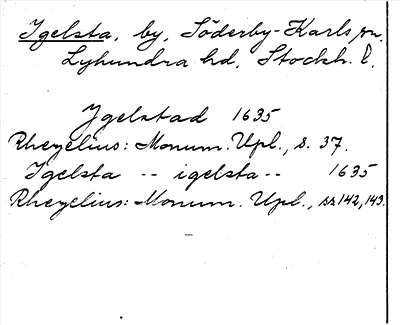 Igelsta, by, Söderby-Karls sn.
Lyhundra hd, Stockh. l.
Ygelstad 1635
Rhezelius: Monum. Upl., s. 37.
Igelsta -- igelsta -- 1635
Rhezelius: Monum. Upl., ss 142, 143.